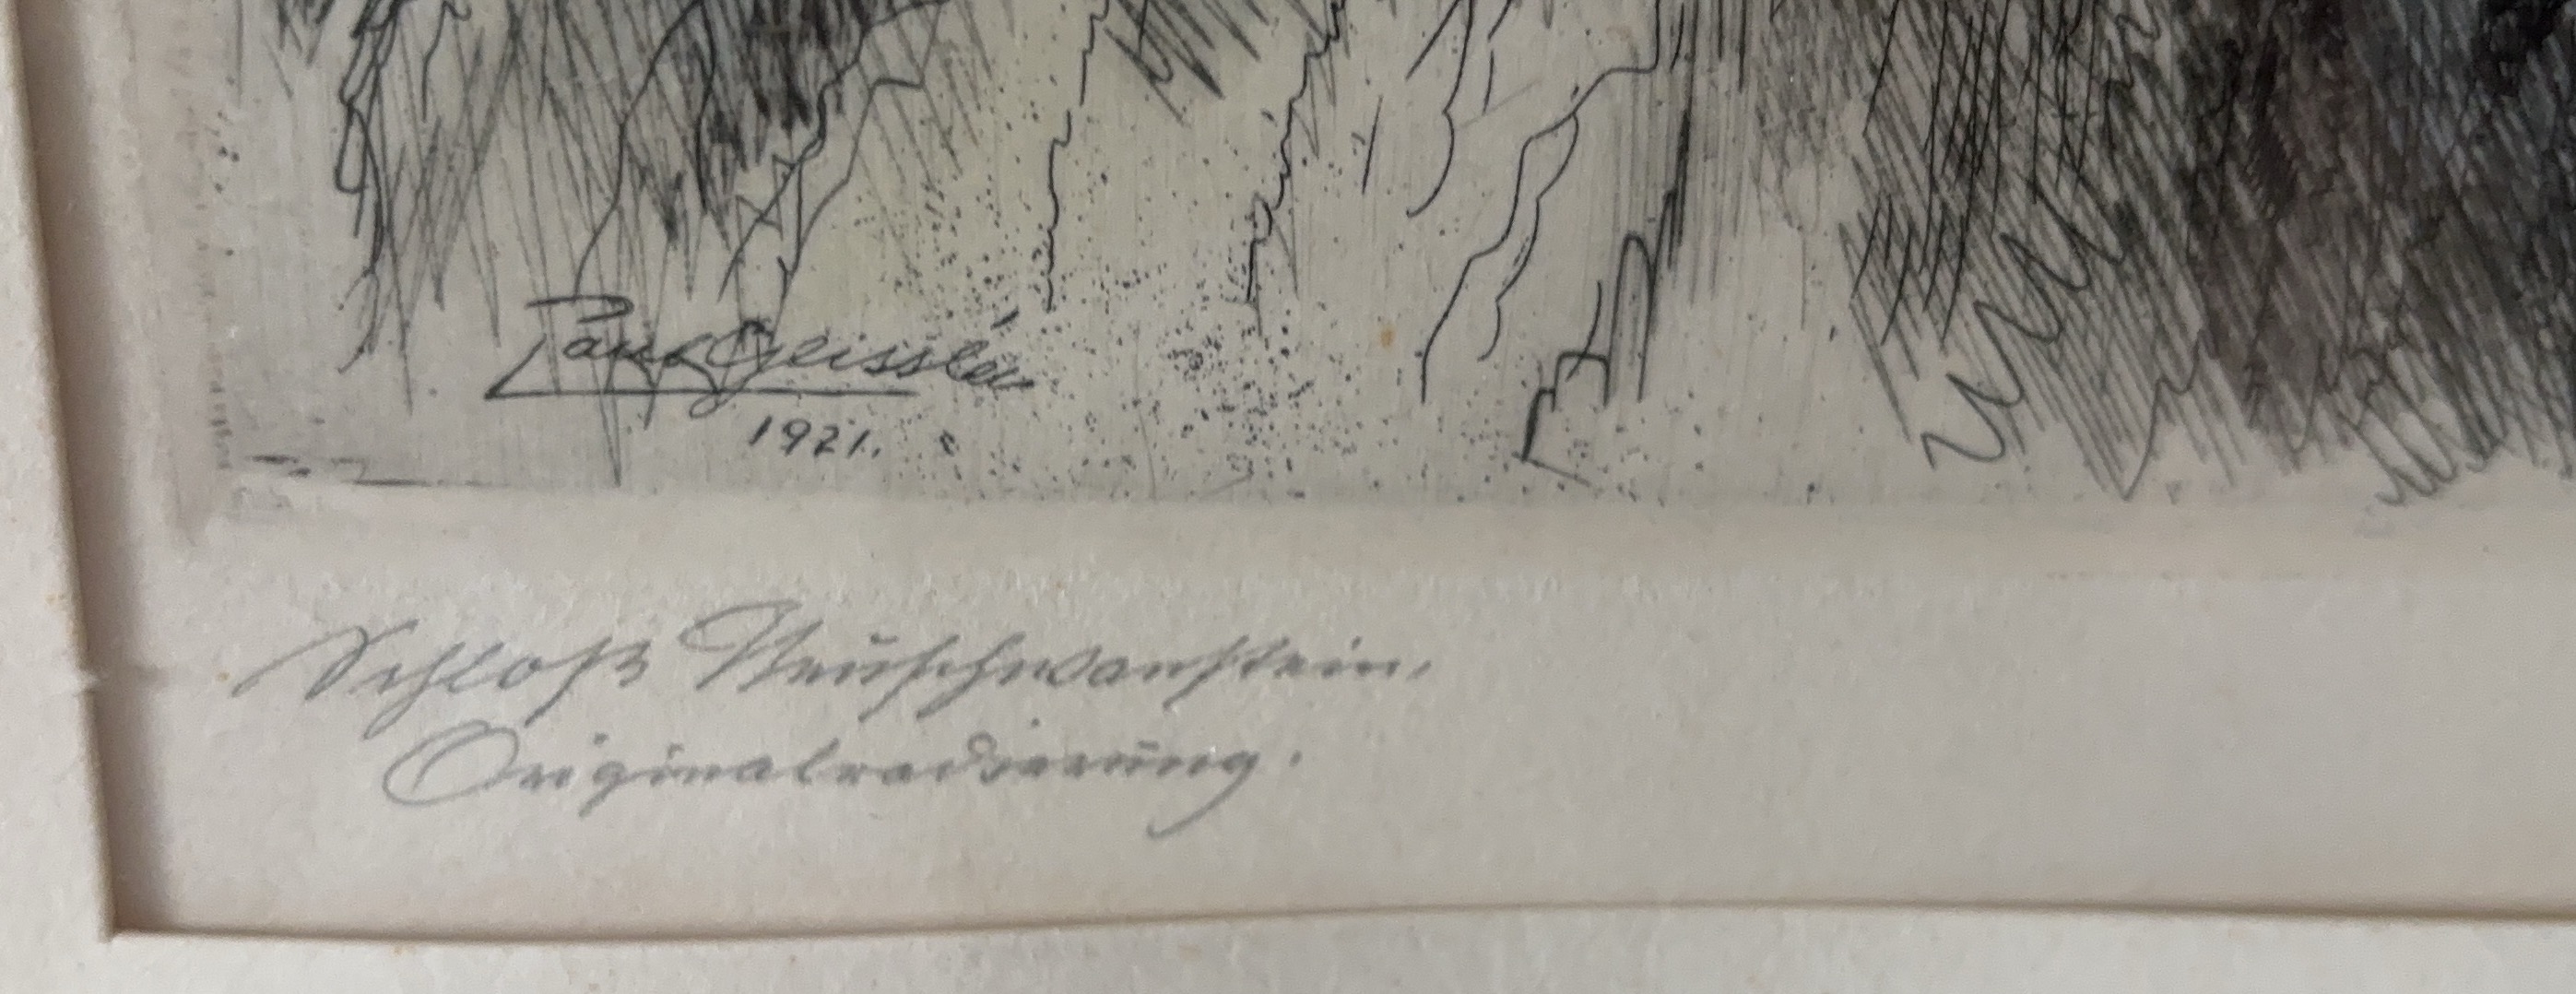 Paul Geissler
1921.
Schloß Neuschwanstein,
Originalradierung.